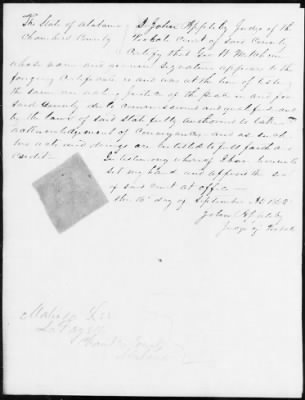 The State of Alabama
Chambers County
I John Appleby Judge of the
Probate Court of said County
Certify that Geo W McKhim
whose name and genuine Signature appears to the
forgoing Certificate is and was at the time of
the same an acting Justice of the peace in and for
said County duly commissioned and qualified and
by the laws of said State fully authorised to take
acknowledgement of Conveyances and as such
his acts and doings are entitled to full faith and
Credit
In testimony whereof I have hereunto
set my hand and affixed the seal
of said court at office
this 16 day of September AD 18
John Appleby
Judge of Probate
Lee
La Fayette